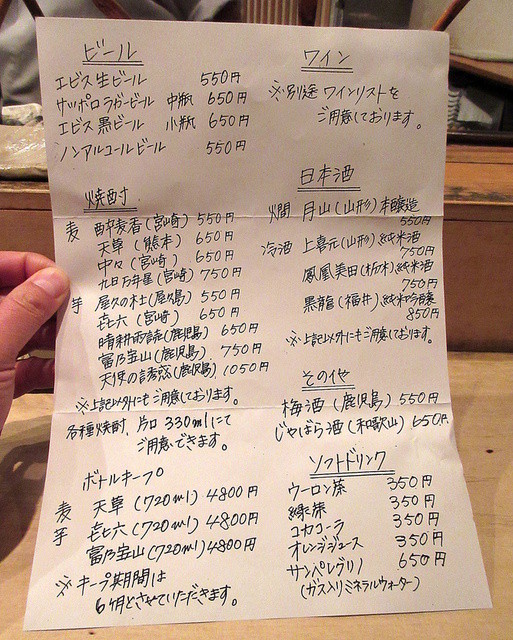 ビール
エビス生ビール 550円
サッポロラガービール 中瓶 650円
エビス黒ビール 小瓶 650円
ノンアルコールビール 550円
焼酎
麦 酔麦香(宮崎) 550円
天草(熊本) 650円
中々(宮崎) 650円
九日万年星(宮崎) 750円
芋 屋久の杜(屋久島) 550円
㐂六(宮崎) 650円
晴耕雨読(鹿児島) 650円
富乃宝山(鹿児島) 750円
天使の誘惑(鹿児島) 1050円
※上記以外にもご用意しております。
各種焼酎、片口330mlにて
ご用意できます。
ボトルキープ
麦 天草(720ml) 4800円
芋 㐂六(720ml) 4800円
富乃宝山(720ml) 4800円
※キープ期間は
6ヶ月とさせていただきます。
ワイン
※別途ワインリストを
ご用意しております。
日本酒
燗 月山(山形)本醸造
550円
冷酒 上喜元(山形)純米酒
750円
鳳凰美田(栃木)純米酒
750円
黒龍(福井)純米吟醸
850円
※上記以外にもご用意しております。
その他
梅酒(鹿児島) 550円
じゃばら酒(和歌山) 650円
ソフトドリンク
ウーロン茶 350円
緑茶 350円
コカコーラ 350円
オレンジジュース 350円
サンペレグリノ 650円
(ガス入りミネラルウォーター)